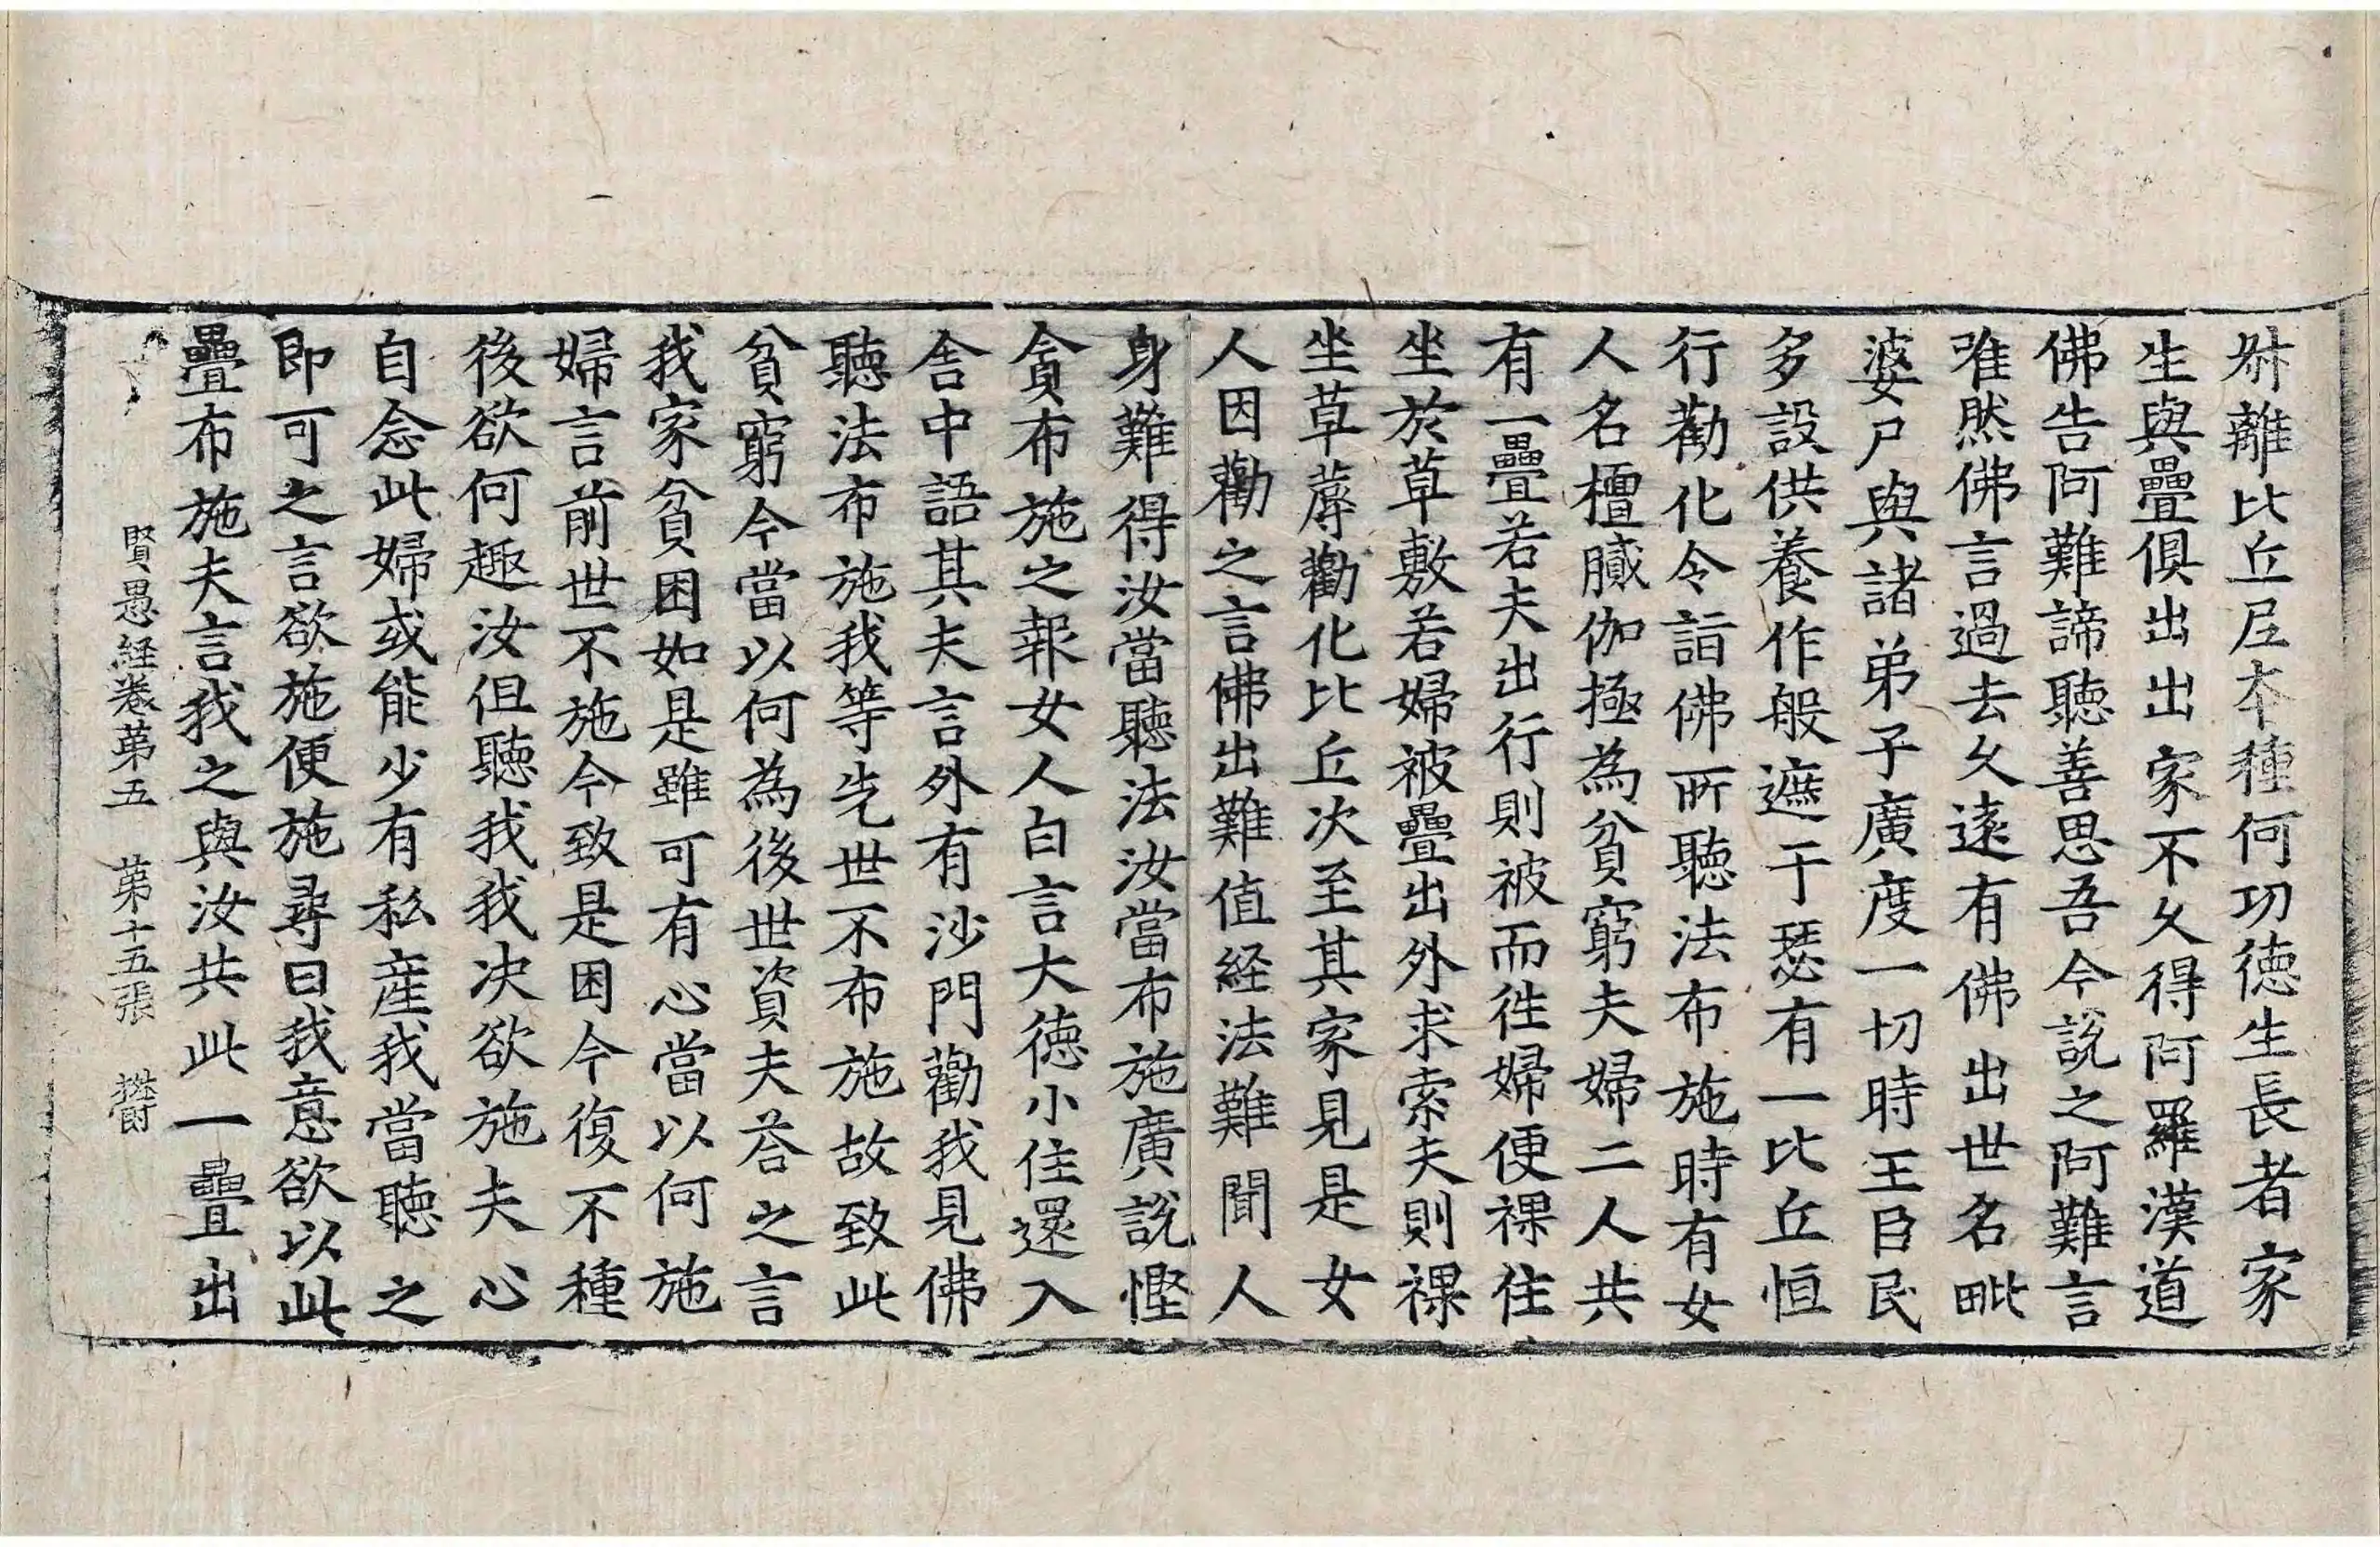 舛離比丘尼本種何功徳生長者家
生與疊俱出出家不久得阿羅漢道
佛告阿難諦聽善思吾今說之阿難言
唯然佛言過去久遠有佛出世名毗
婆尸與諸弟子廣度一切時王臣民
多設供養作般遮于瑟有一比丘恒
行勸化令詣佛所聽法布施時有女
人名檀膩伽極為貧窮夫婦二人共
有一疊若夫出行則被而往婦便裸住
坐於草敷若婦被疊出外求索夫則裸
坐草蓐勸化比丘次至其家見是女
人因勸之言佛出難值経法難聞人
身難得汝當聽法汝當布施廣說慳
貪布施之報女人白言大徳小住還入
舍中語其夫言外有沙門勸我見佛
聽法布施我等先世不布施故致此
貧窮今當以何為後世資夫荅之言
我家貧困如是雖可有心當以何施
婦言前世不施今致是困今復不種
後欲何趣汝但聽我我决欲施夫心
自念此婦或能少有私產我當聽之
即可之言欲施便施尋曰我意欲以此
疊布施夫言我之與汝共此一疊出
賢愚経卷第五 第十五張 欝